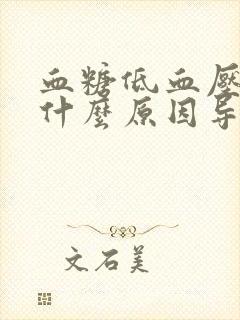 血糖低血壓
什麼原因导
文石美